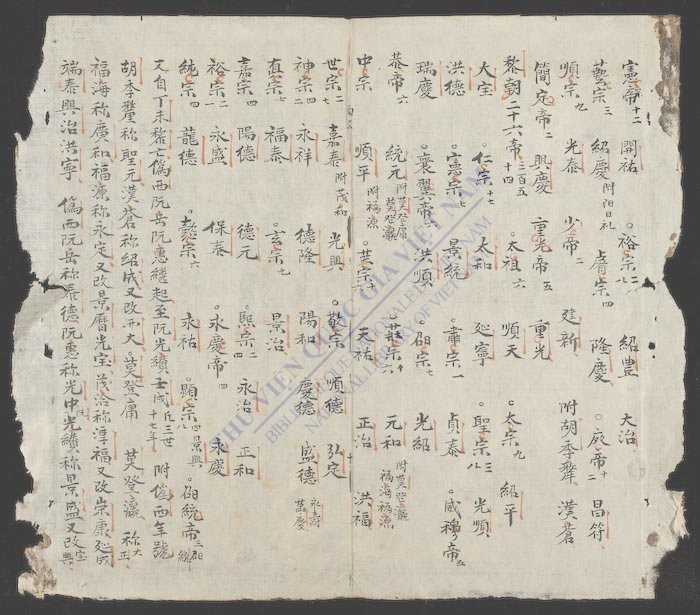 憲帝十二 開祐 裕宗二八 紹豊 大治
藝宗三 紹慶 附陽日礼 睿宗四 隆慶 廢帝十 昌符
順宗九 光泰 少帝二 建新 附胡季犛 漢蒼
簡定帝二 興慶 重光帝五 重光
黎朝二十六帝 三百五十四 太祖六 順天 太宗九 紹平
大宝 仁宗十七 太和 延寧 聖宗三八 光順
洪德 憲宗七 景統 肅宗一 貞泰 威穆帝五
瑞慶 襄翼帝 洪順 昭宗七 光紹
恭帝六 統元 附莫登庸 莫登瀛 莊宗十六 元和 附莫登瀛 福海福源
中宗 順平 附福源 英宗十 天祐 正治 洪福
世宗二七 嘉泰 附茂和 光興 敬宗 順德 弘定
神宗二四 永祥 德隆 陽和 慶德 盛德 永壽 萬慶
直宗七 福泰 玄宗九 景治
嘉宗四 陽德 德元 熙宗二四 永治 正和
裕宗一 永盛 保泰 永慶帝四 永慶
純宗四 龍德 懿宗六 永祐 顯宗四八 景興 昭統帝三 昭統
又自丁未黎亡偽西阮岳阮惠継起至阮光纘壬戌 氏三世十七年 附僭西年號
胡季犛称聖元漢蒼称紹成又改開大 莫登庸 莫登瀛 称大正
福海称廣和福源称永定又改景曆光宝茂洽称淳福又改崇康延成
端泰興治洪寧 偽西阮岳称泰德阮惠称光中阮光纘称景盛又改宝興
THƯ VIỆN QUỐC GIA VIỆT NAM
BIBLIOTHÈQUE NATIONALE DU VIETNAM
NATIONAL LIBRARY OF VIETNAM